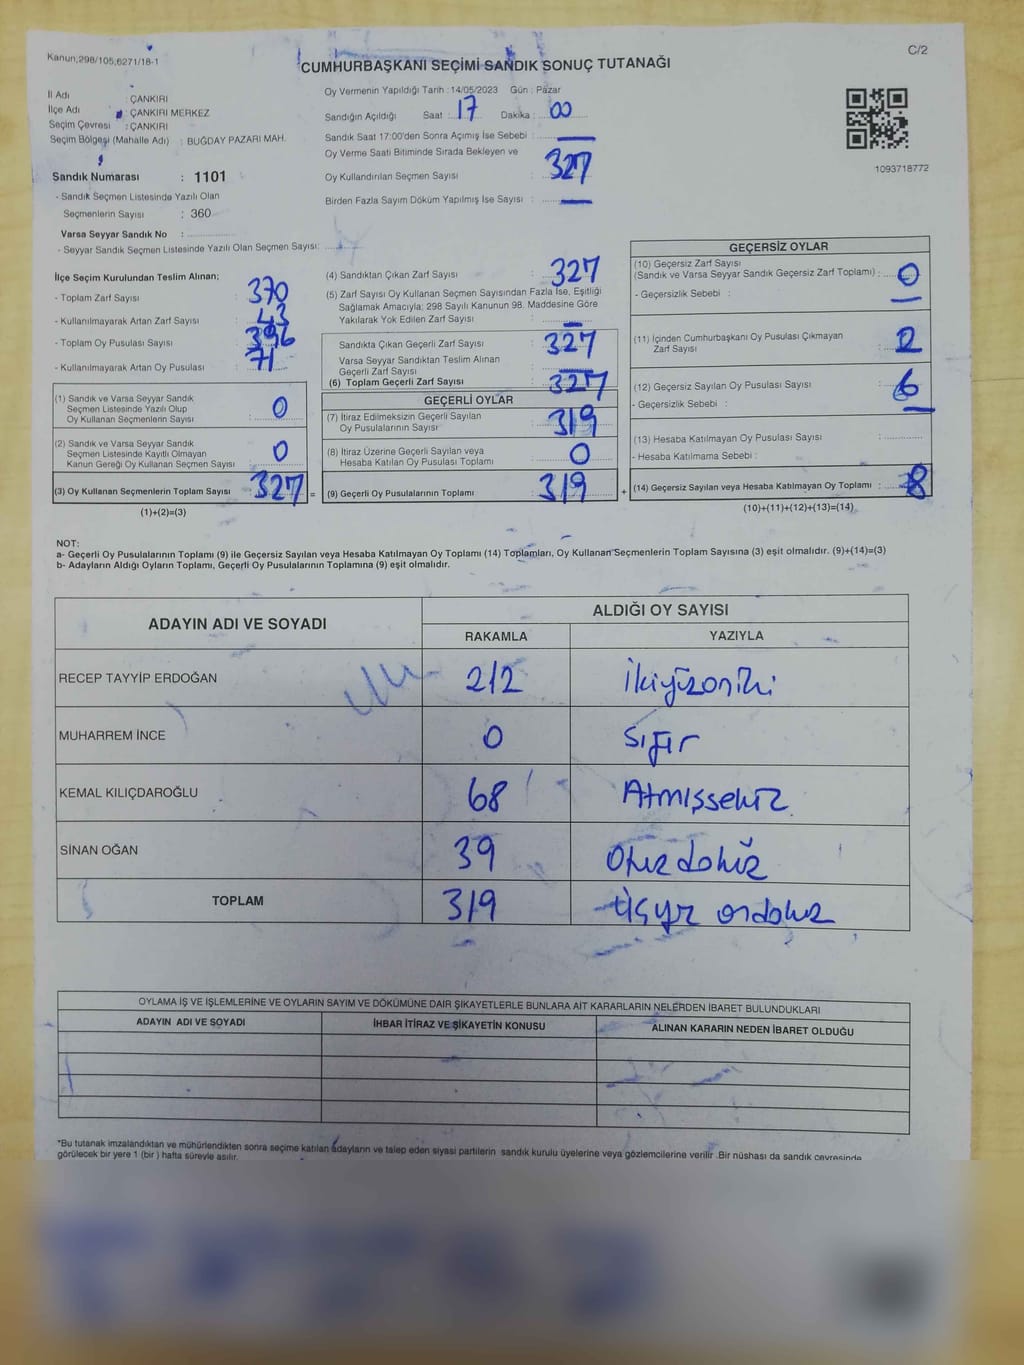 Kanun,298/105,6271/18-1
C/2
CUMHURBAŞKANI SEÇİMİ SANDIK SONUÇ TUTANAĞI
İl Adı : ÇANKIRI
İlçe Adı : ÇANKIRI MERKEZ
Seçim Çevresi : ÇANKIRI
Seçim Bölgesi (Mahalle Adı) : BUĞDAY PAZARI MAH.
Sandık Numarası : 1101
- Sandık Seçmen Listesinde Yazılı Olan
Seçmenlerin Sayısı : 360
Varsa Seyyar Sandık No :
- Seyyar Sandık Seçmen Listesinde Yazılı Olan Seçmen Sayısı:
Oy Vermenin Yapıldığı Tarih : 14/05/2023 Gün : Pazar
Sandığın Açıldığı Saat : 17 Dakika : 00
Sandık Saat 17:00'den Sonra Açımış İse Sebebi :
Oy Verme Saati Bitiminde Sırada Bekleyen ve
Oy Kullandırılan Seçmen Sayısı : 327
Birden Fazla Sayım Döküm Yapılmış İse Sayısı :
1093718772
İlçe Seçim Kurulundan Teslim Alınan;
- Toplam Zarf Sayısı : 370
- Kullanılmayarak Artan Zarf Sayısı : 43
- Toplam Oy Pusulası Sayısı : 396
- Kullanılmayarak Artan Oy Pusulası : 71
(1) Sandık ve Varsa Seyyar Sandık
Seçmen Listesinde Yazılı Olup
Oy Kullanan Seçmenlerin Sayısı : 0
(2) Sandık ve Varsa Seyyar Sandık
Seçmen Listesinde Kayıtlı Olmayan
Kanun Gereği Oy Kullanan Seçmen Sayısı : 0
(3) Oy Kullanan Seçmenlerin Toplam Sayısı : 327 =
(1)+(2)=(3)
(4) Sandıktan Çıkan Zarf Sayısı : 327
(5) Zarf Sayısı Oy Kullanan Seçmen Sayısından Fazla İse, Eşitliği
Sağlamak Amacıyla; 298 Sayılı Kanunun 98. Maddesine Göre
Yakılarak Yok Edilen Zarf Sayısı :
Sandıkta Çıkan Geçerli Zarf Sayısı : 327
Varsa Seyyar Sandıktan Teslim Alınan
Geçerli Zarf Sayısı :
(6) Toplam Geçerli Zarf Sayısı : 327
GEÇERLİ OYLAR
(7) İtiraz Edilmeksizin Geçerli Sayılan
Oy Pusulalarının Sayısı : 319
(8) İtiraz Üzerine Geçerli Sayılan veya
Hesaba Katılan Oy Pusulası Toplamı : 0
(9) Geçerli Oy Pusulalarının Toplamı : 319 +
GEÇERSİZ OYLAR
(10) Geçersiz Zarf Sayısı
(Sandık ve Varsa Seyyar Sandık Geçersiz Zarf Toplamı) : 0
- Geçersizlik Sebebi :
(11) İçinden Cumhurbaşkanı Oy Pusulası Çıkmayan
Zarf Sayısı : 2
(12) Geçersiz Sayılan Oy Pusulası Sayısı : 6
- Geçersizlik Sebebi :
(13) Hesaba Katılmayan Oy Pusulası Sayısı :
- Hesaba Katılmama Sebebi :
(14) Geçersiz Sayılan veya Hesaba Katılmayan Oy Toplamı : 8
(10)+(11)+(12)+(13)=(14)
NOT:
a- Geçerli Oy Pusulalarının Toplamı (9) ile Geçersiz Sayılan veya Hesaba Katılmayan Oy Toplamı (14) Toplamları, Oy Kullanan Seçmenlerin Toplam Sayısına (3) eşit olmalıdır. (9)+(14)=(3)
b- Adayların Aldığı Oyların Toplamı, Geçerli Oy Pusulalarının Toplamına (9) eşit olmalıdır.
ADAYIN ADI VE SOYADI
ALDIĞI OY SAYISI
RAKAMLA YAZIYLA
RECEP TAYYİP ERDOĞAN 212 ikiyüzoniki
MUHARREM İNCE 0 Sıfır
KEMAL KILIÇDAROĞLU 68 Atmışsekiz
SİNAN OĞAN 39 Otuzdokuz
TOPLAM 319 Üçyüz ondokuz
OYLAMA İŞ VE İŞLEMLERİNE VE OYLARIN SAYIM VE DÖKÜMÜNE DAİR ŞİKAYETLERLE BUNLARA AİT KARARLARIN NELERDEN İBARET BULUNDUKLARI
ADAYIN ADI VE SOYADI İHBAR İTİRAZ VE ŞİKAYETİN KONUSU ALINAN KARARIN NEDEN İBARET OLDUĞU
*Bu tutanak imzalandıktan ve mühürlendikten sonra seçime katılan adayların ve talep eden siyasi partilerin sandık kurulu üyelerine veya gözlemcilerine verilir .Bir nüshası da sandık çevresinde
görülecek bir yere 1 (bir ) hafta süreyle asılır.